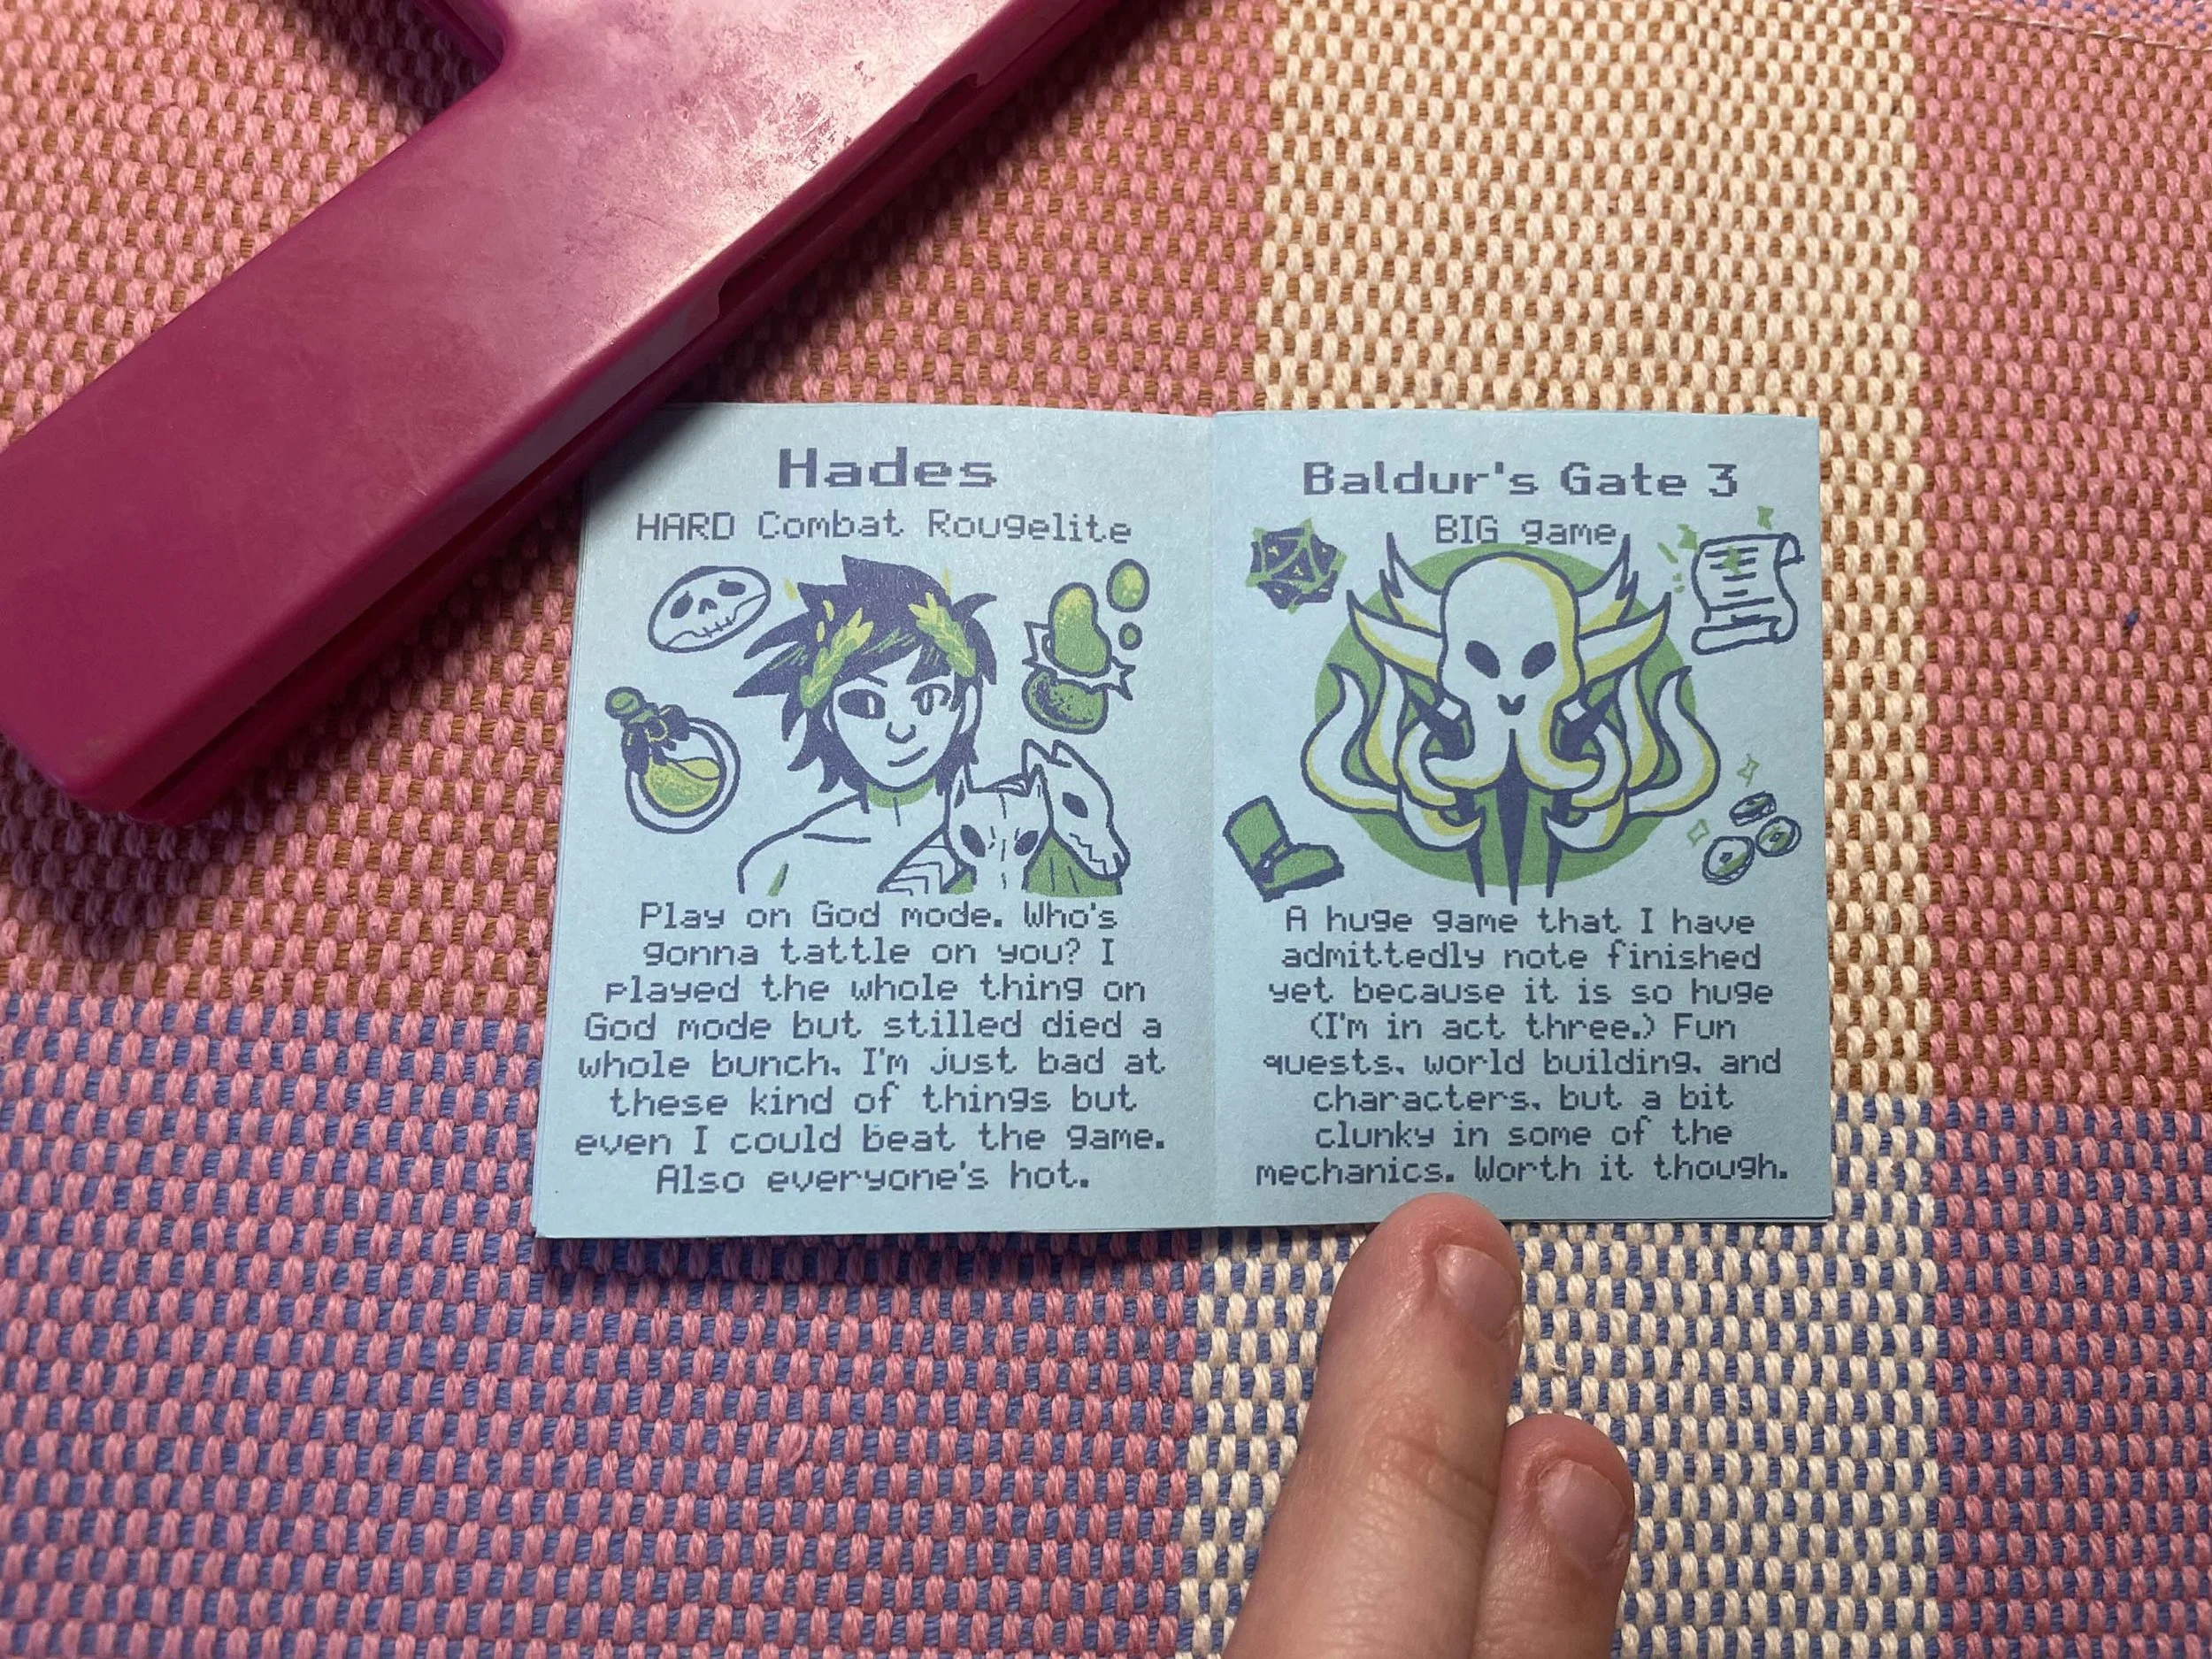 Hades
HARD Combat Rougelite
Play on God mode. Who's
gonna tattle on you? I
played the whole thing on
God mode but stilled died a
whole bunch. I'm just bad at
these kind of things but
even I could beat the game.
Also everyone's hot.
Baldur's Gate 3
BIG game
A huge game that I have
admittedly note finished
yet because it is so huge
(I'm in act three.) Fun
quests, world building, and
characters, but a bit
clunky in some of the
mechanics. Worth it though.